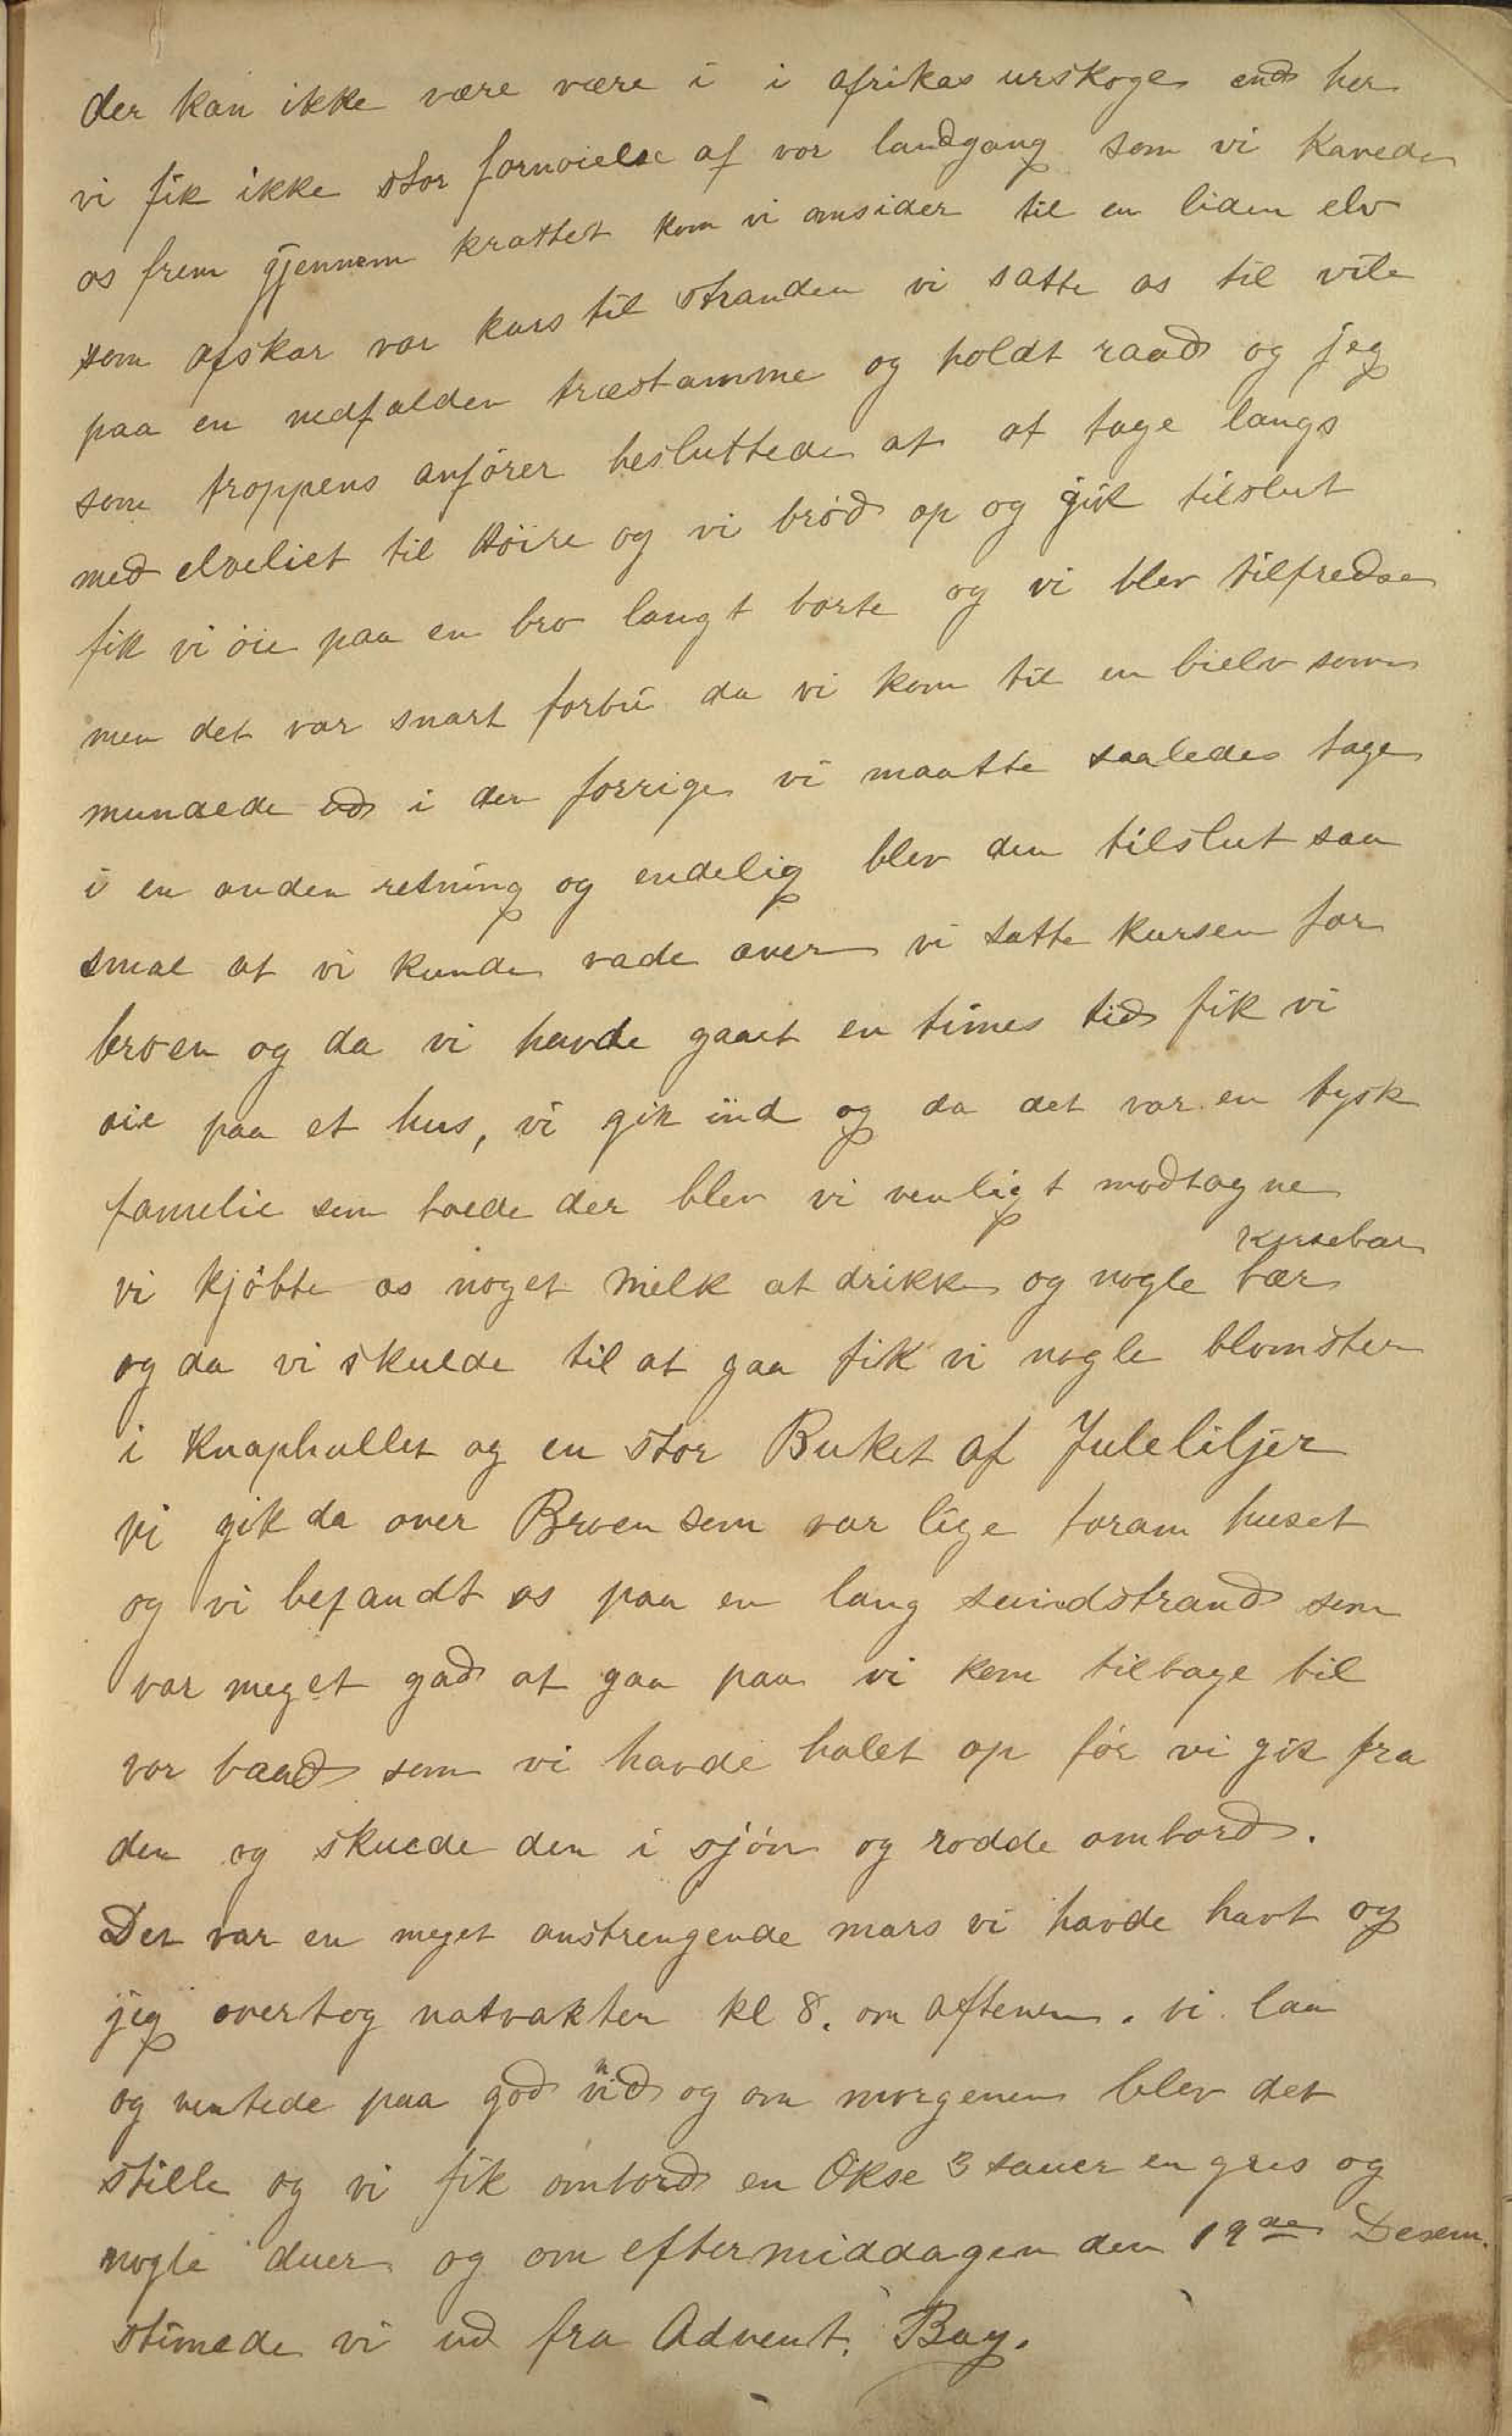 der kan ikke være være i i afrikas urskoge end her
vi fik ikke stor fornøielse af vor landgang som vi kavede
os frem gjennem krattet kom vi omsider til en liden elv
som afskar vor kurs til stranden vi satte os til vile
paa en nedfalden træstamme og holdt raad og jeg
som troppens anförer besluttede at at tage langs
med elveliet til Höire og vi bröd op og gik tilslut
fik vi öie paa en bro langt borte og vi blev tilfredse
men det var snart forbi da vi kom til en bielv som
mundede ud i den forrige vi maatte saaledes tage
i en anden retning og endelig blev den tilslut saa
smal at vi kunde vade over vi satte kursen for
broen og da vi havde gaaet en times tid fik vi
oie paa et hus, vi gik ind og da det var en tysk
famelie som boede der blev vi venligt modtagne
kirsebær
vi kjöbte os noget Melk at drikke og nogle bær
og da vi skulde til at gaa fik vi nogle blomster
i Knaphullet og en stor Buket af Juleliljer
vi gik da over Broen som var lige foran huset
og vi befandt os paa en lang sandstrand som
var meget god at gaa paa vi kom tilbage til
vor baad som vi havde halet op för vi gik fra
den og skuede den i sjön og rodde ombord.
Det var en meget anstrengende mars vi havde havt og
jeg overtog natvakten kl 8. om aftenen. vi laa
og ventede paa god vind og om morgenen blev det
stille og vi fik ombord en Okse 3 sauer en gris og
nogle duer og om eftermiddagen den 19de Desem.
stimede vi ud fra Advent. Bay.